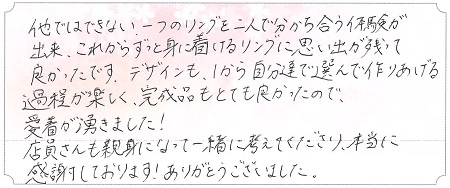 他ではできない一つのリングを二人で分かち合う体験が
出来、これからずっと身に着けるリングに思い出が残って
良かったです。デザインも、1から自分達で選んで作りあげる
過程が楽しく、完成品もとても良かったので、
愛着が湧きました！
店員さんも親身になって一緒に考えてくださり、本当に
感謝しております！ありがとうございました。